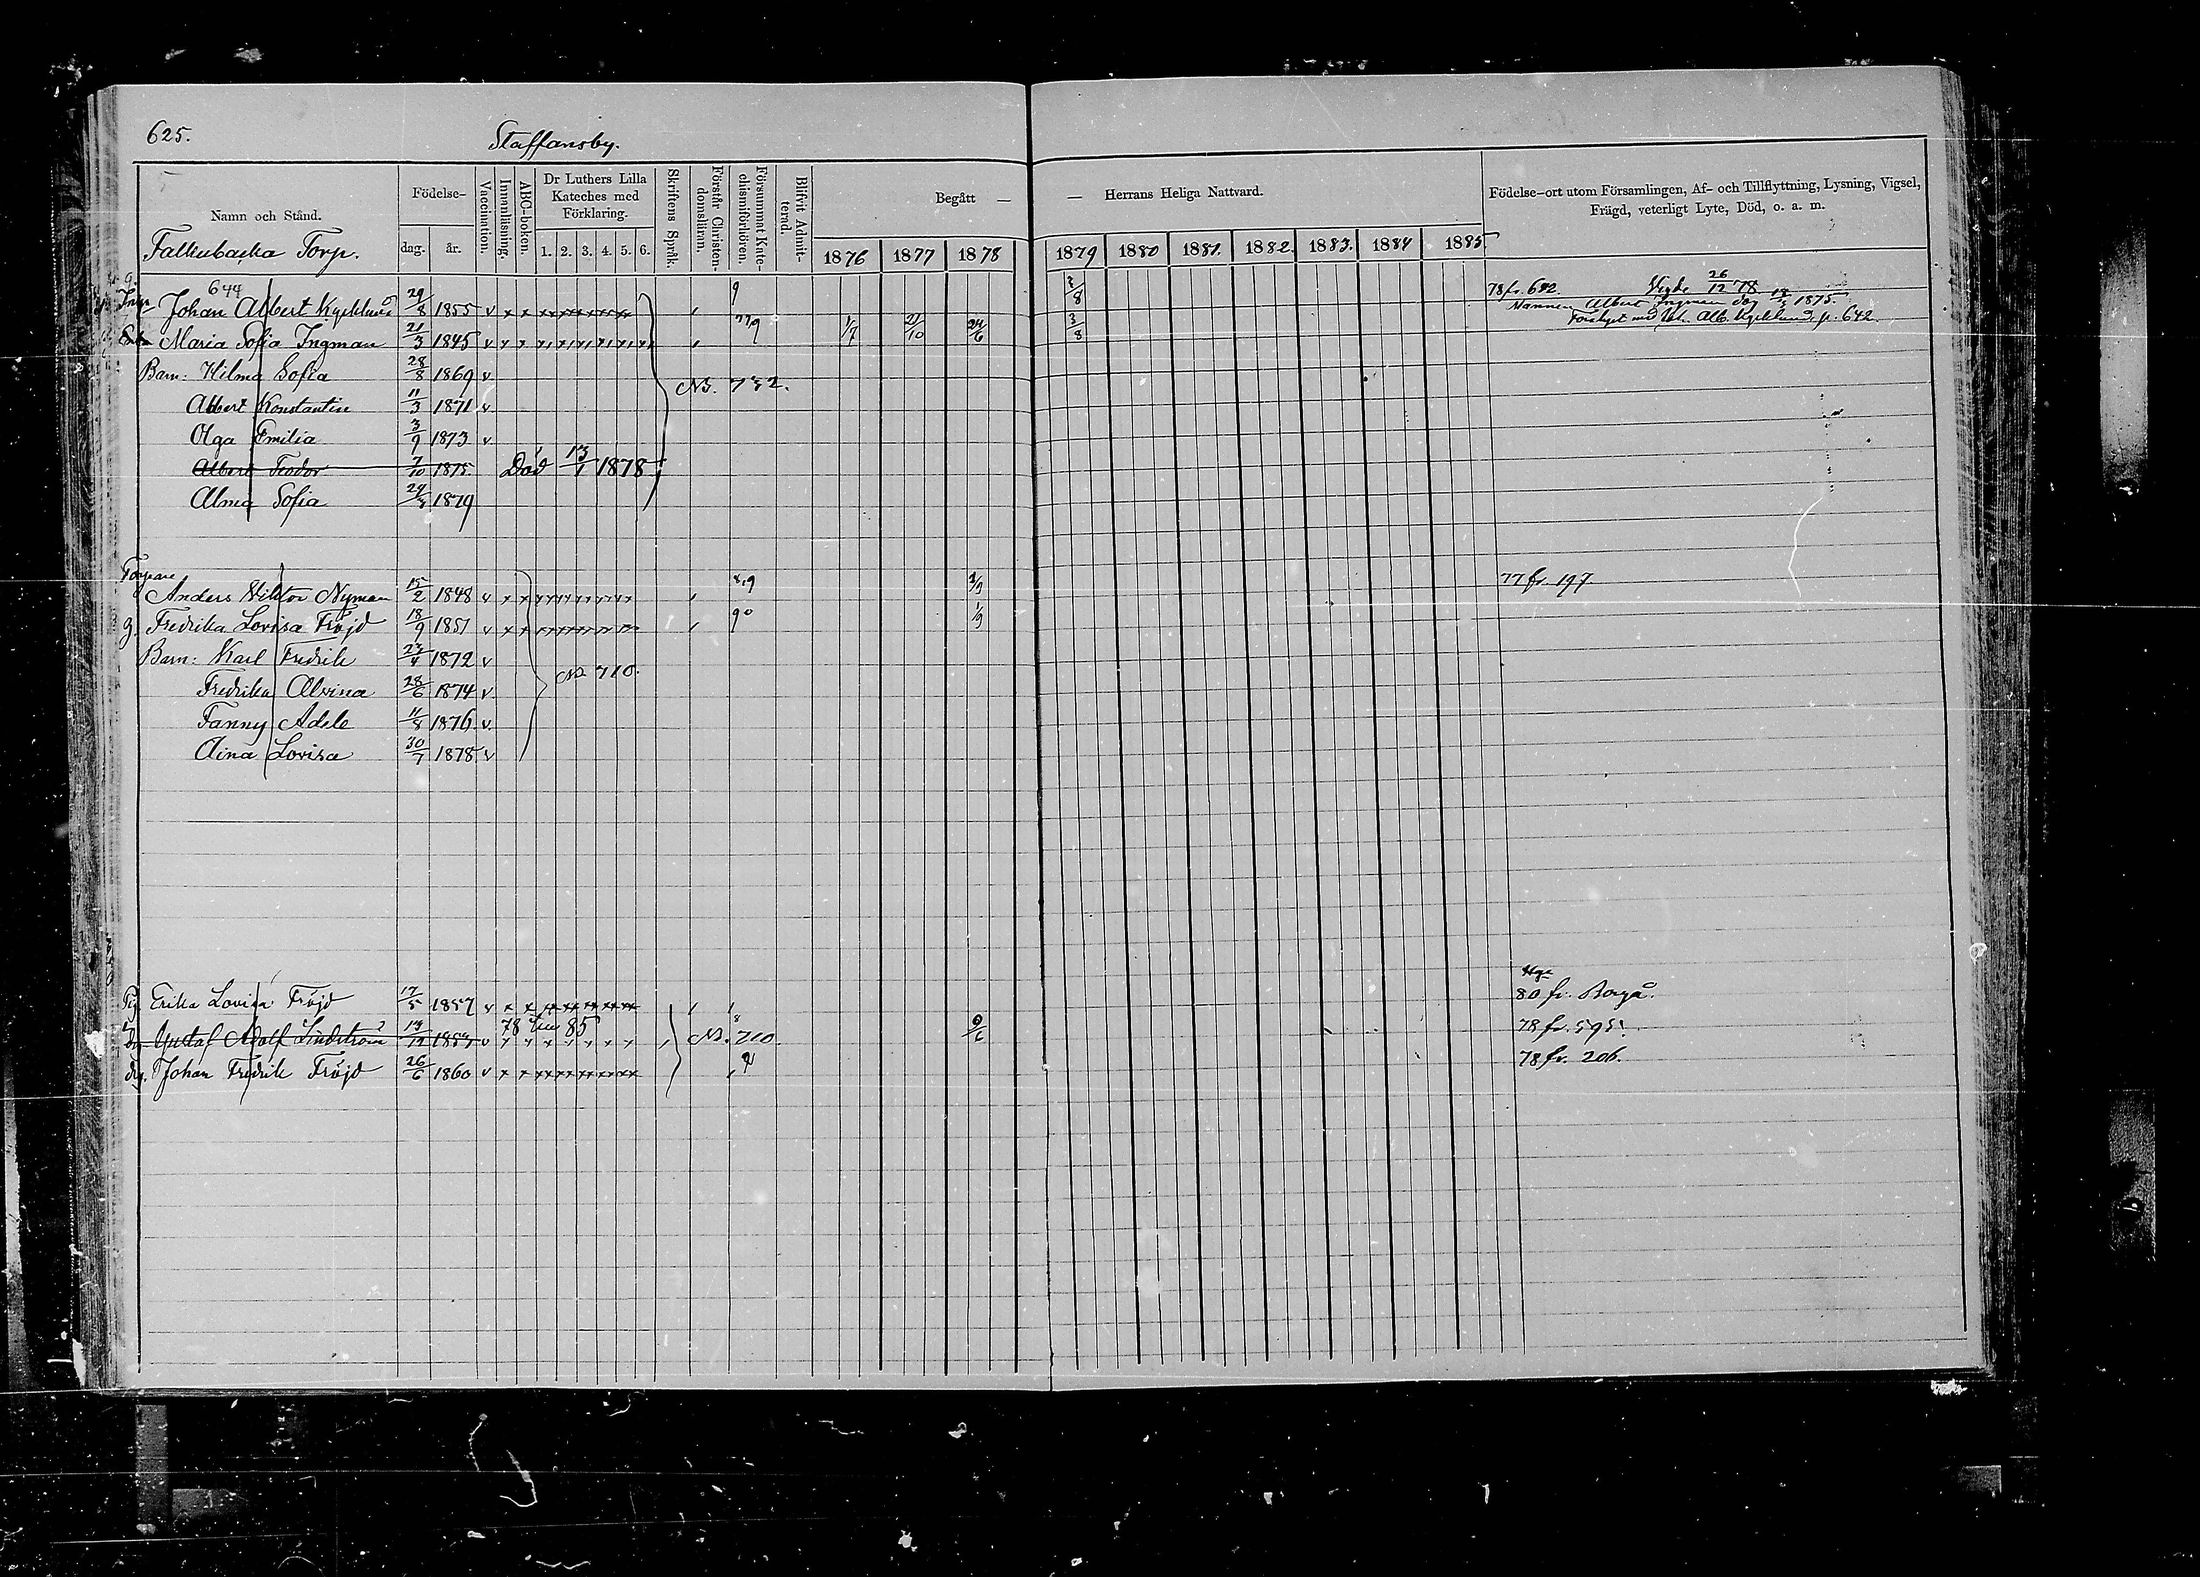 625.
Staffansby.
Namn och Stånd.
Födelse-
dag.
år.
Vaccination.
Innanläsning.
ABC-boken.
Dr Luthers Lilla
Kateches med
Förklaring.
1. 2. 3. 4. 5. 6.
Skriftens Språk.
Förstår Christen-
domsläran.
Försummat Kate-
chismiförhören.
Blifvit Admit-
terad.
Begått —
— Herrans Heliga Nattvard.
1876 1877 1878 1879 1880 1881. 1882. 1883. 1884 1885.
Födelse-ort utom Församlingen, Af- och Tillflyttning, Lysning, Vigsel,
Frägd, veterligt Lyte, Död, o. a. m.
Falkubacka Torp.
644
Johan Albert Kycklund 29/8 1855 v 9 2/8 78 fr. 642 Vigde 26/12 78
Mannen Albert Ingman dog 18/3 1875.
Maria Sofia Ingman 21/3 1845 v 779 1/7 21/10 24/6 3/8 Joh. Alb. Kycklund p. 642.
Barn: Hilma Sofia 28/8 1869 v. N3. 732.
Albert Konstantin 11/3 1871 v.
Olga Emilia 3/9 1873 v
Albert Feodor 7/10 1875. Död 13/1 1878
Alma Sofia 1879
Torpare
Anders Viktor Nyman 15/2 1848 v 8,9 1/9 77 fr. 197
g. Fredrika Lovisa Fröjd 18/9 1851 v 90 1/9
Barn: Karl Fredrik 23/4 1872 v
Fredrika Alvina 28/6 1874 v. N3 710.
Fanny Adele 11/8 1876 v.
Aina Lovisa 30/7 1878 v
Pig. Erika Lovisa Fröjd 17/5 1857 v 80 fr. Borgå.
Gustaf Adolf Lindström 13/12 1857 v 78 85 N3. 710. 9/6 78 fr. 595.
Drg. Johan Fredrik Fröjd 26/6 1860 v 78 fr. 206.